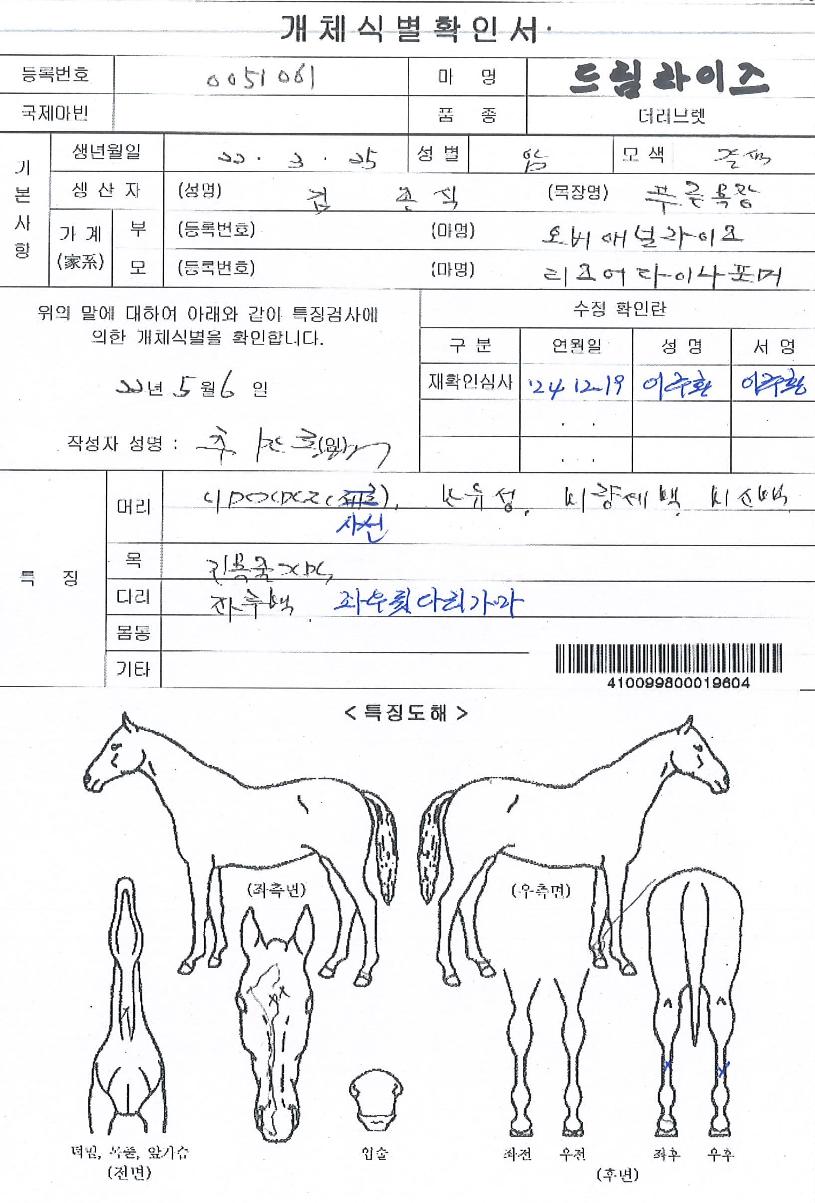 개체식별확인서
등록번호 0051061 마 명 드림라이즈
국제마빈 품 종 더러브렛
기본사항
생년월일 22 . 3 . 25 성별 암 모색 갈색
생산자 (성명) (목장명) 푸른목장
가계 (家系) 부 (등록번호) (마명) 오버애널라이즈
모 (등록번호) (마명)
위의 말에 대하여 아래와 같이 특징검사에
의한 개체식별을 확인합니다.
22년 5월 6일
작성자 성명 : (인)
수정 확인란
구 분 연월일 성 명 서 명
재확인심사 '24.12.19 이주환 이주환
. .
. .
특 징
머리 유성, 비량세백, 비선백
사선
목
다리 좌후백 좌우뒷다리가마
몸통
기타
410099800019604
<특징도해>
(좌측면)
(우측면)
턱밑, 목끝, 앞가슴
(전면)
입술
좌전 우전 좌후 우후
(후면)